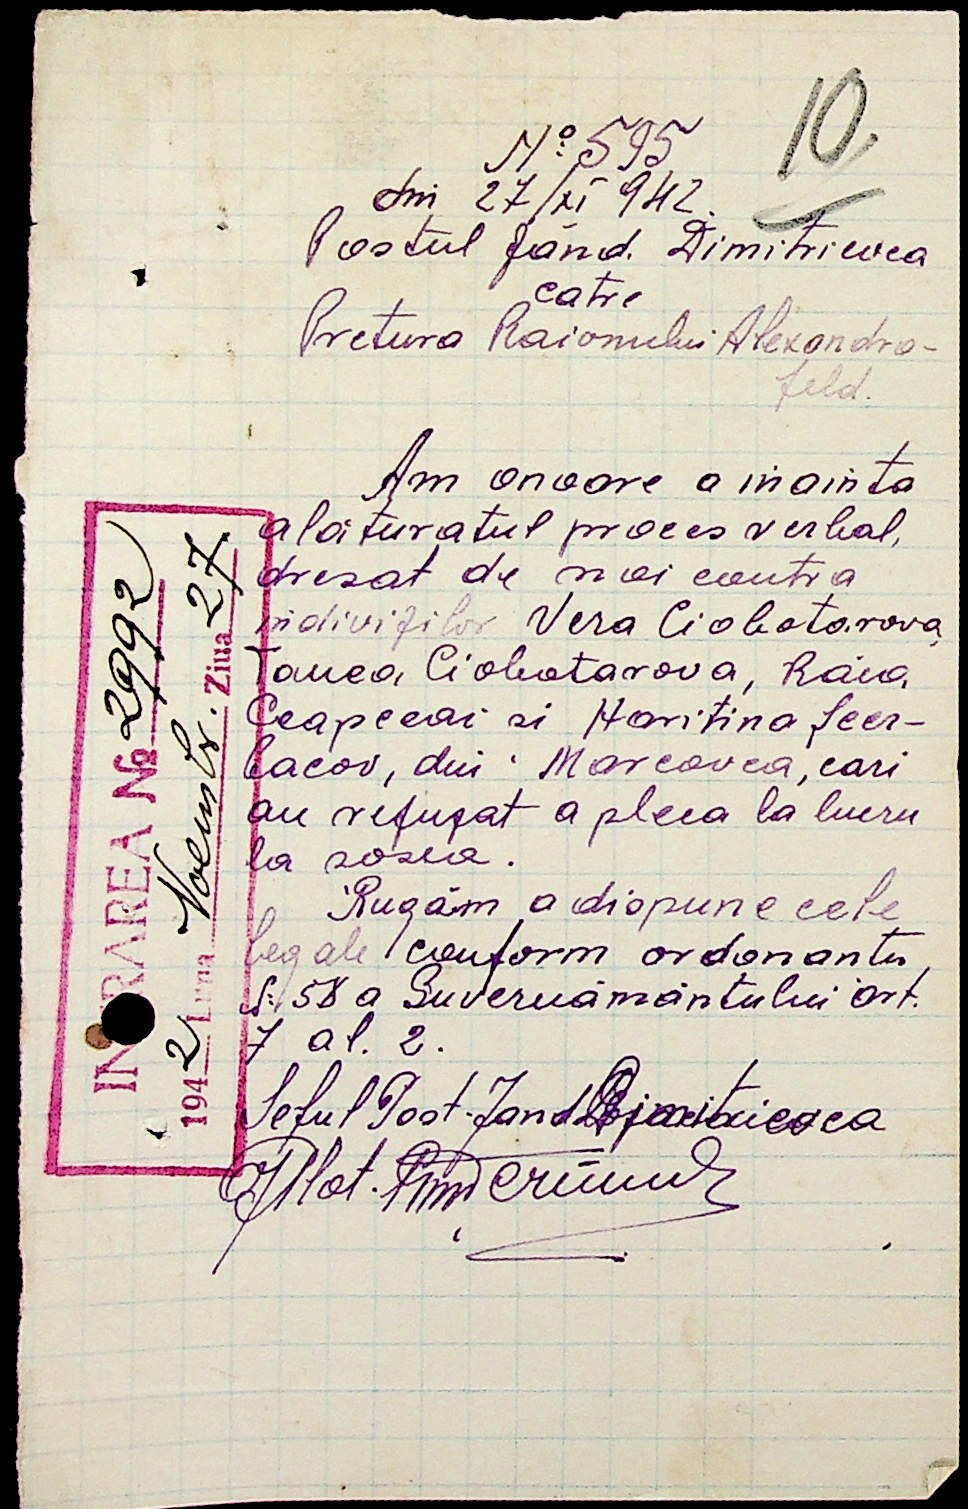 10.
No: 595
din 27/XI 942.
Postul Jand. Dimitrievca
catre
Pretura Raionului Alexandra-
feld.
Am onoare a inainta
alăturatul proces verbal,
dresat de noi contra
indivizilor Vera Ciobotarova,
Tanea Ciobotarova, Raia
Ceapceai si Haritina Scer-
bacov, din Marcovca, cari
au refuzat a pleca la lucru
la sosea.
Rugăm a dispune cele
legale conform ordonantei
No: 58 a Guvernământului art.
7 al. 2.
Seful Post. Jand Dimitrievca
Plot.
INTRAREA № 2992
1942 Luna Noembr. Ziua 27